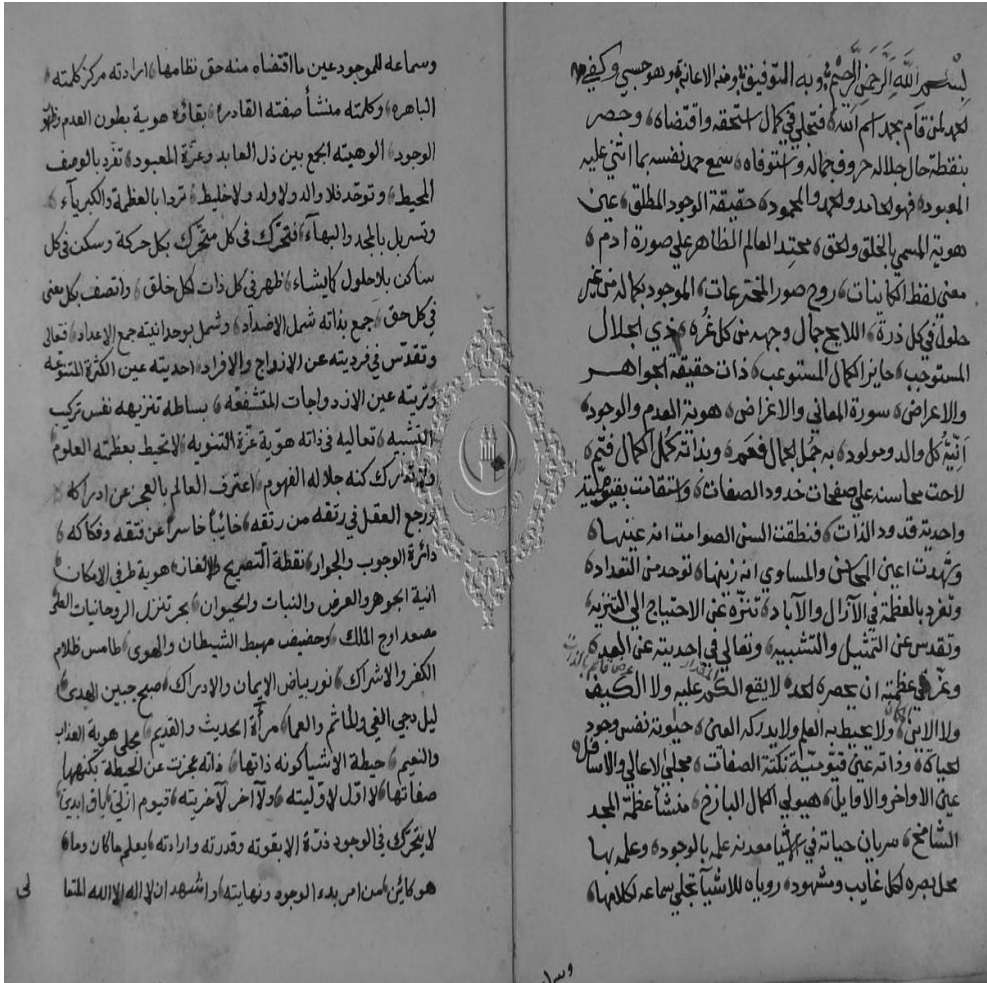 بسم الله الرحمن الرحيم وبه التوفيق ومنه الاعانة وهو حسبي وكفى
الحمد لمن قام بحمد اسم الله فتجلى في كمال استحقه واقتضاه وحصر
بنقطة خال جلاله حروف جماله واستوفاه سمع حمد نفسه بما اثنى عليه
المعبود فهو الحامد والحمد والمحمود حقيقة الوجود المطلق عين
هوية المسمى بالخلق والحق محتد العالم الظاهر على صورة ادم
معنى لفظ الكاينات روح صور المخترعات الموجود بكماله من غير
حلول في كل ذرة اللايح جمال وجهه من كل غره ذي الجلال
المستوجب حايز الكمال المستوعب ذات حقيقة الجواهر
والاعراض سورة المعاني والاغراض هوية العدم والوجود
انية كل والد ومولود به جمل الجمال فعم وبذاته كمل الكمال فتم
لاحت محاسنه على صفحات خدود الصفات واستقامت بقيومية
واحدية قدود الذات فنطقت السن الصوامت انه عينها
وشهدت اعين المحاسن والمساوي انه زينها توحد من التعداد
وتفرد بالعظمة في الآزال والآباد تنزه عن الاحتياج الى التنزيه
وتقدس عن التمثيل والتشبيه وتعالى في احديته عن العدد
وعز في عظمته ان يحصره الحد لا يقع الكم عليه ولا الكيف
ولا الاين ولا يحيط به العلم ولا يدركه العين حيوته نفس وجود
الحياة وذاته عين قيومية نكتة الصفات مجلى الاعالي والاسافل
عين الاواخر والاوايل هيولى الكمال الباذخ منشأ عظمة المجد
الشامخ سريان حياته في الاشيا معدن علمه بالوجود وعلمه بها
محل بصره لكل غايب ومشهود روياه للاشيا تجلي سماعه لكلامها
وسماعه للموجود عين ما اقتضاه منه حق نظامها ارادته مركز كلمته
الباهره وكلمته منشأ صفته القادره بقاؤه هوية بطون العدم وظهور
الوجود الوهيته الجمع بين ذل العابد وعزة المعبود تفرد بالوصف
المحيط وتوحد فلا والد ولا ولد ولا خليط تردا بالعظمة والكبرياء
وتسربل بالمجد والبهاء فتحرك في كل متحرك بكل حركة وسكن في كل
ساكن بلا حلول كما يشاء ظهر في كل ذات لكل خلق واتصف بكل معنى
في كل حق جمع بذاته شمل الاضداد وشمل بوحدانيته جمع الاعداد فتعالى
وتقدس في فرديته عن الازواج والافراد احديته عين الكثرة المتنوعه
وتريته عين الازدواجات المتشفعه بساطة تنزيهه نفس تركيب
التشبيه تعاليه في ذاته هوية عزة التنويه لا تحيط بعظمته العلوم
ولا تدرك كنه جلاله الفهوم اعترف العالم بالعجز عن ادراكه
ورجع العقل في رتقه من رتقه خائبا خاسرا عن فتقه وفكاكه
دائرة الوجوب والجواز نقطة التصريح والالغاز هوية طرفي الامكان
انية الجوهر والعرض والنبات والحيوان بحر تنزل الروحانيات
مصعد اوج الملك وحضيض مهبط الشيطان والهوى طامس ظلام
الكفر والاشراك نور بياض الايمان والادراك صبح جبين الهدى
ليل دجى الغي والعما مرآة الحديث والقديم مجلى هوية العذاب
والنعيم حيطة الاشيا كونه ذاتها ذاته عجزت عن الحيطة بكنهها
صفاتها لا اول لاوليته ولا آخر لآخريته قيوم ازلي باق ابدي
لا يتحرك في الوجود ذرة الا بقوته وقدرته وارادته يعلم ما كان وما
هو كائن من امر بدء الوجود ونهايته واشهد ان لا اله الا الله المتعا
لى